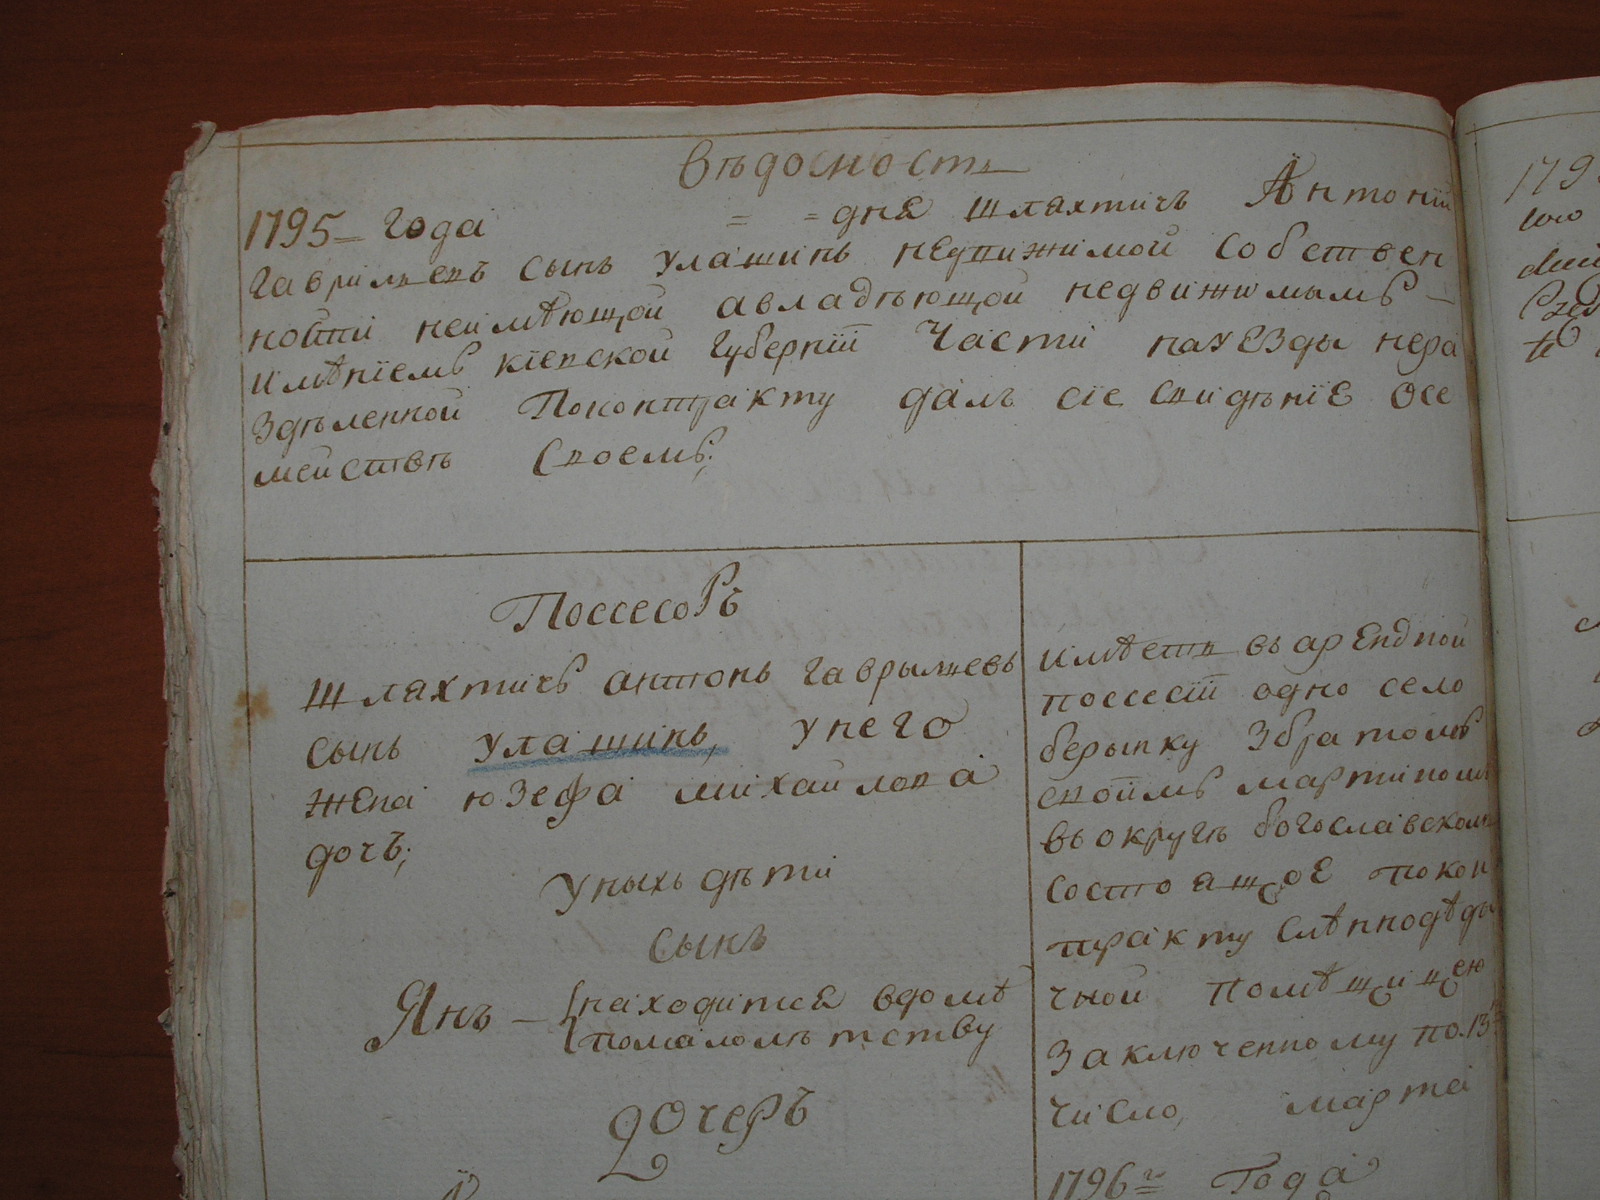 вѣдомость
1795 года = = дня шляхтичъ Антонїй
гаврилевъ сынъ улашинъ недвижимой собствен
ности неимѣющой авладѣющой недвижимымъ
имѣнїемъ кїевской губернїи части науезды нера
здѣленной поконтракту далъ сїе свидѣнїе осе
мействѣ своемъ;
Поссесоръ
шляхтичъ антонъ гаврылевъ
сынъ улашинъ, унего
жена юзефа михайлова
дочъ;
уныхъ дѣти
сынъ
Янъ – находится вдомѣ
помаломѣтству
дочеръ
имѣетъ въ арендной
поссесїи одно село
берынку збратомъ
своїмъ мартиномъ
въокругѣ богославскомъ
состоящое покон
тракту
чной помѣщицею
заключенному по 13е
число, марта
1796го года
179